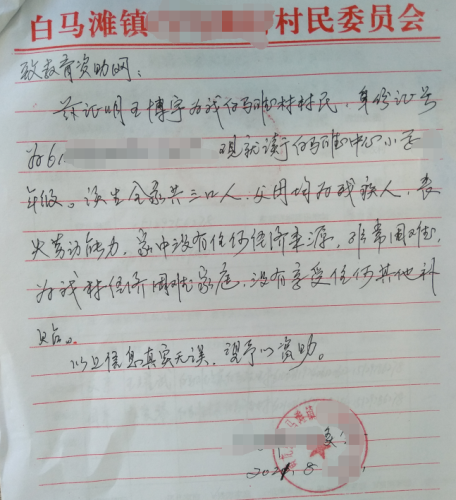 白马滩镇 村民委员会
致教育资助网：
兹证明王博宇为我白马滩村村民，身份证号
为61 现就读于白马滩中心小学
年级。该生全家共三口人，父母均为残疾人，丧
失劳动能力，家中没有任何经济来源，非常困难，
为我村经济困难家庭，没有享受任何其他补
贴。
以上信息真实无误，望予以资助。
马滩镇
8